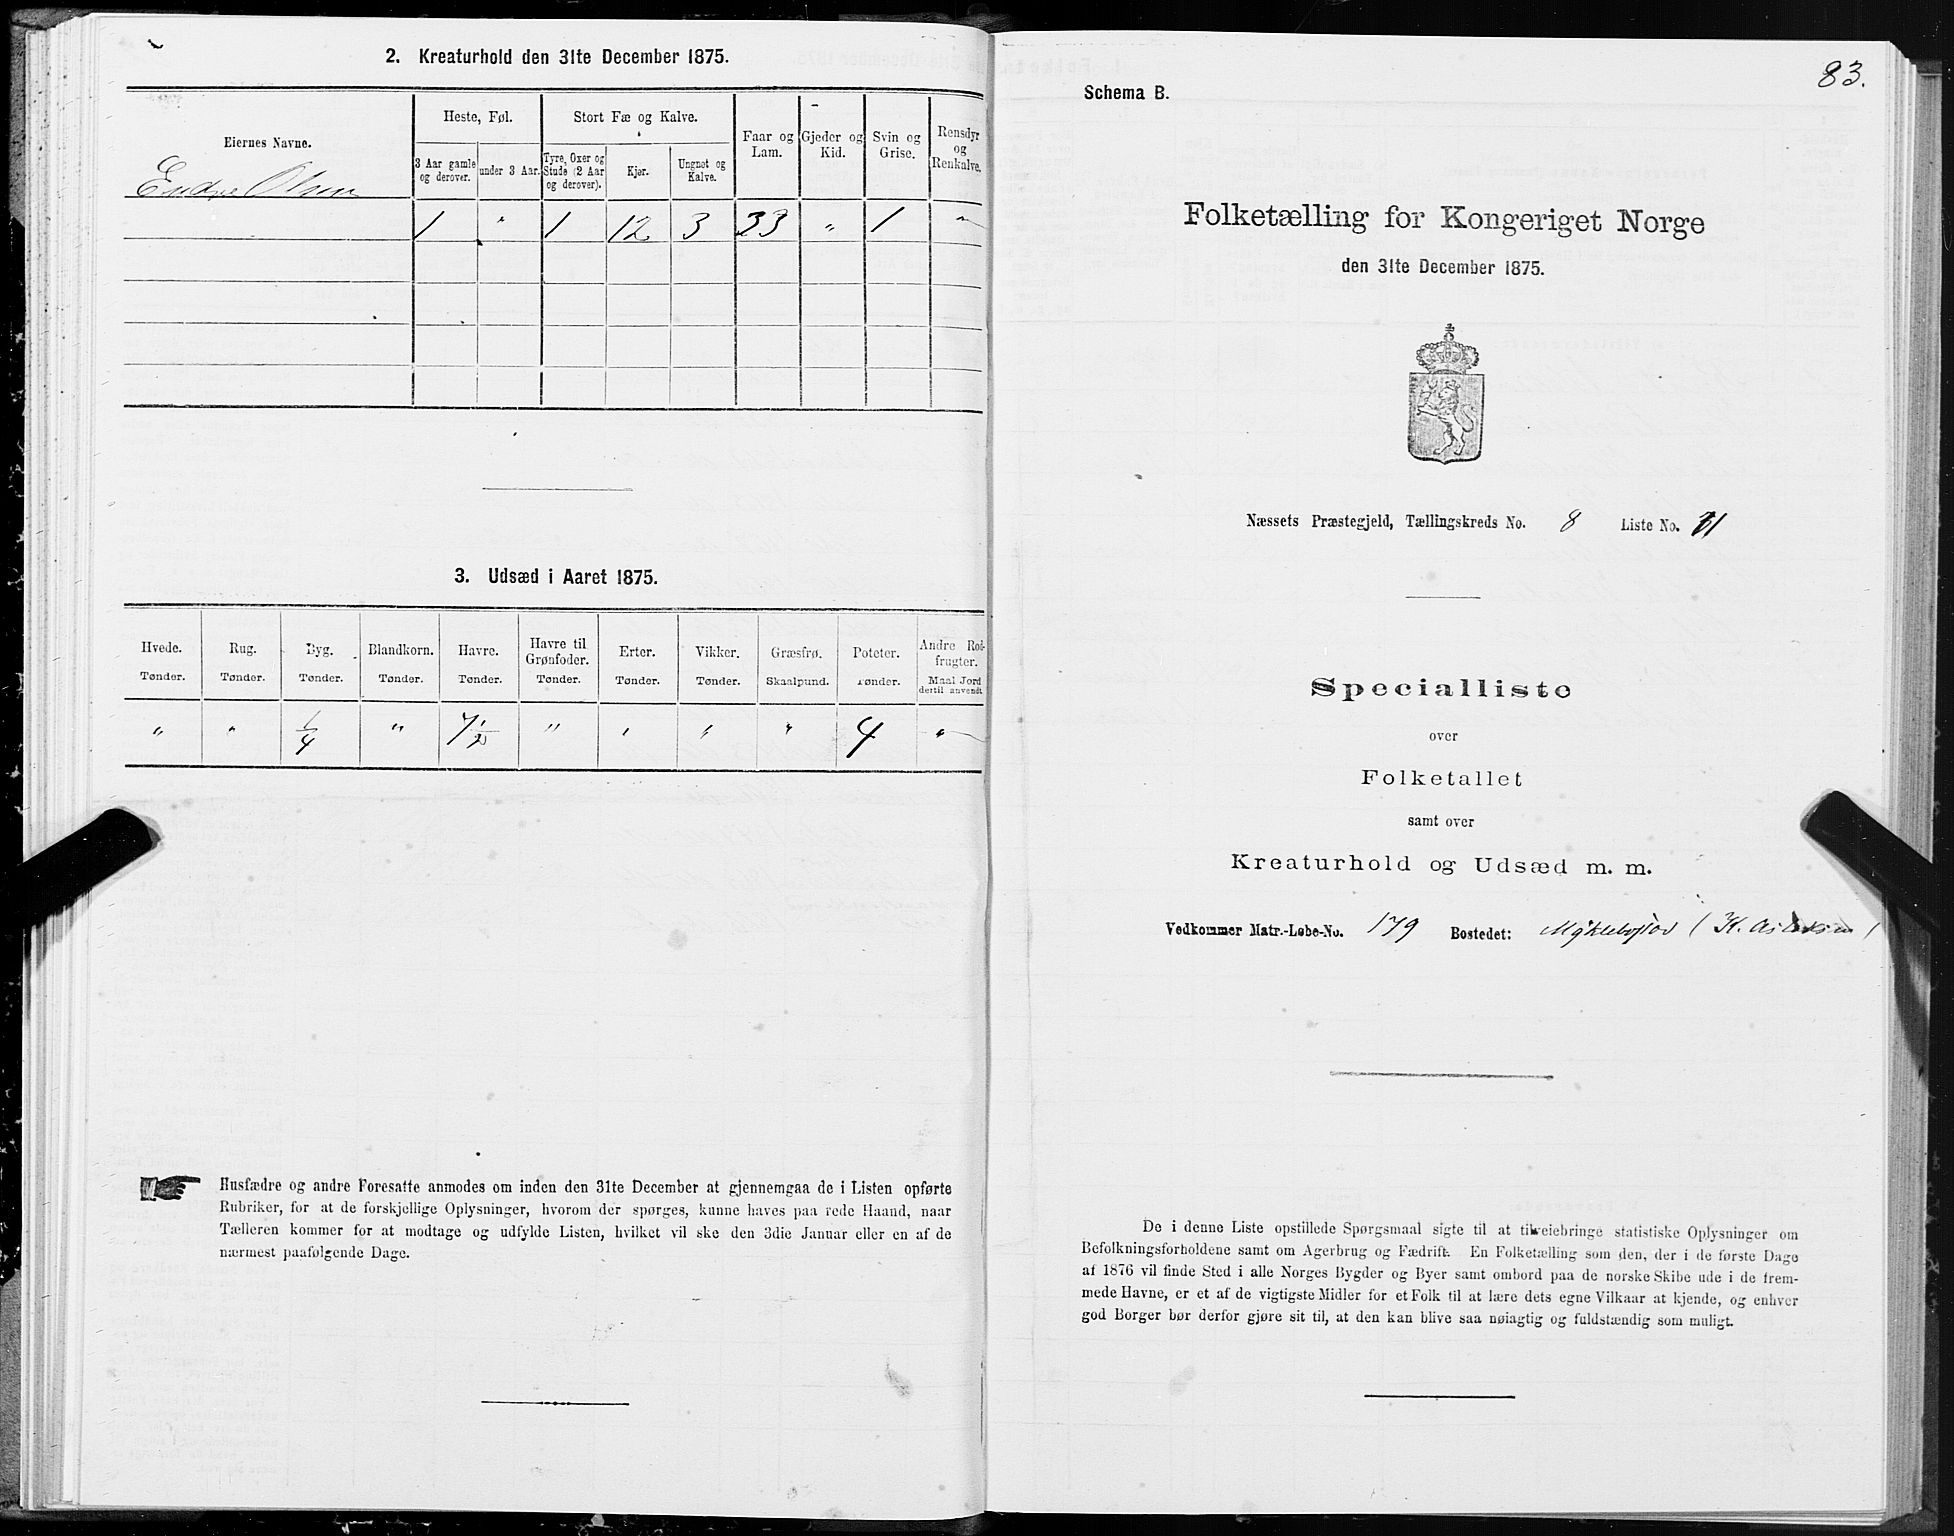 2. Kreaturhold den 31te December 1875.
Eiernes Navne.
Heste, Føl.
Stort Fæ og Kalve.
Faar og Lam.
Gjeder og Kid.
Svin og Grise.
Rensdyr og Renkalve.
3 Aar gamle og derover.
under 3 Aar.
Tyre, Oxer og Stude (2 Aar og derover).
Kjør.
Ungnøt og Kalve.
Endre Olsen
1 " 1 12 3 33 " 1 "
3. Udsæd i Aaret 1875.
Hvede. Rug. Byg. Blandkorn. Havre. Havre til Grønfoder. Erter. Vikker. Græsfrø. Poteter. Andre Rodfrugter.
Tønder. Tønder. Tønder. Tønder. Tønder. Tønder. Tønder. Tønder. Skaalpund. Tønder. Maal Jord dertil anvendt
" " 1/4 " 7 1/2 " " " " 4 "
Husfædre og andre Foresatte anmodes om inden den 31te December at gjennemgaa de i Listen opførte
Rubriker, for at de forskjellige Oplysninger, hvorom der spørges, kunne haves paa rede Haand, naar
Tælleren kommer for at modtage og udfylde Listen, hvilket vil ske den 3die Januar eller en af de
nærmest paafølgende Dage.
83.
Schema B.
Folketælling for Kongeriget Norge
den 31te December 1875.
Næssets Præstegjeld, Tællingskreds No. 8 Liste No.
Specialliste
over
Folketallet
samt over
Kreaturhold og Udsæd m. m.
Vedkommer Matr.-Løbe-No. 179 Bostedet: Myklebostad (
De i denne Liste opstillede Spørgsmaal sigte til at tilveiebringe statistiske Oplysninger om
Befolkningsforholdene samt om Agerbrug og Fædrift. En Folketælling som den, der i de første Dage
af 1876 vil finde Sted i alle Norges Bygder og Byer samt ombord paa de norske Skibe ude i de frem-
mede Havne, er et af de vigtigste Midler for et Folk til at lære dets egne Vilkaar at kjende, og enhver
god Borger bør derfor gjøre sit til, at den kan blive saa nøiagtig og fuldstændig som muligt.